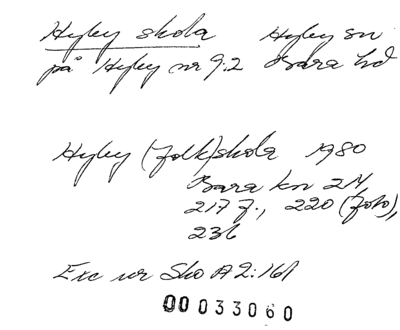 Hyby skola Hyby sn
på Hyby nr 9:2 Bara hd
Hyby (folk)skola 1980
Bara kn 2M,
217 f., 220 (foto),
236
Exc ur Sko A2:161
00033060